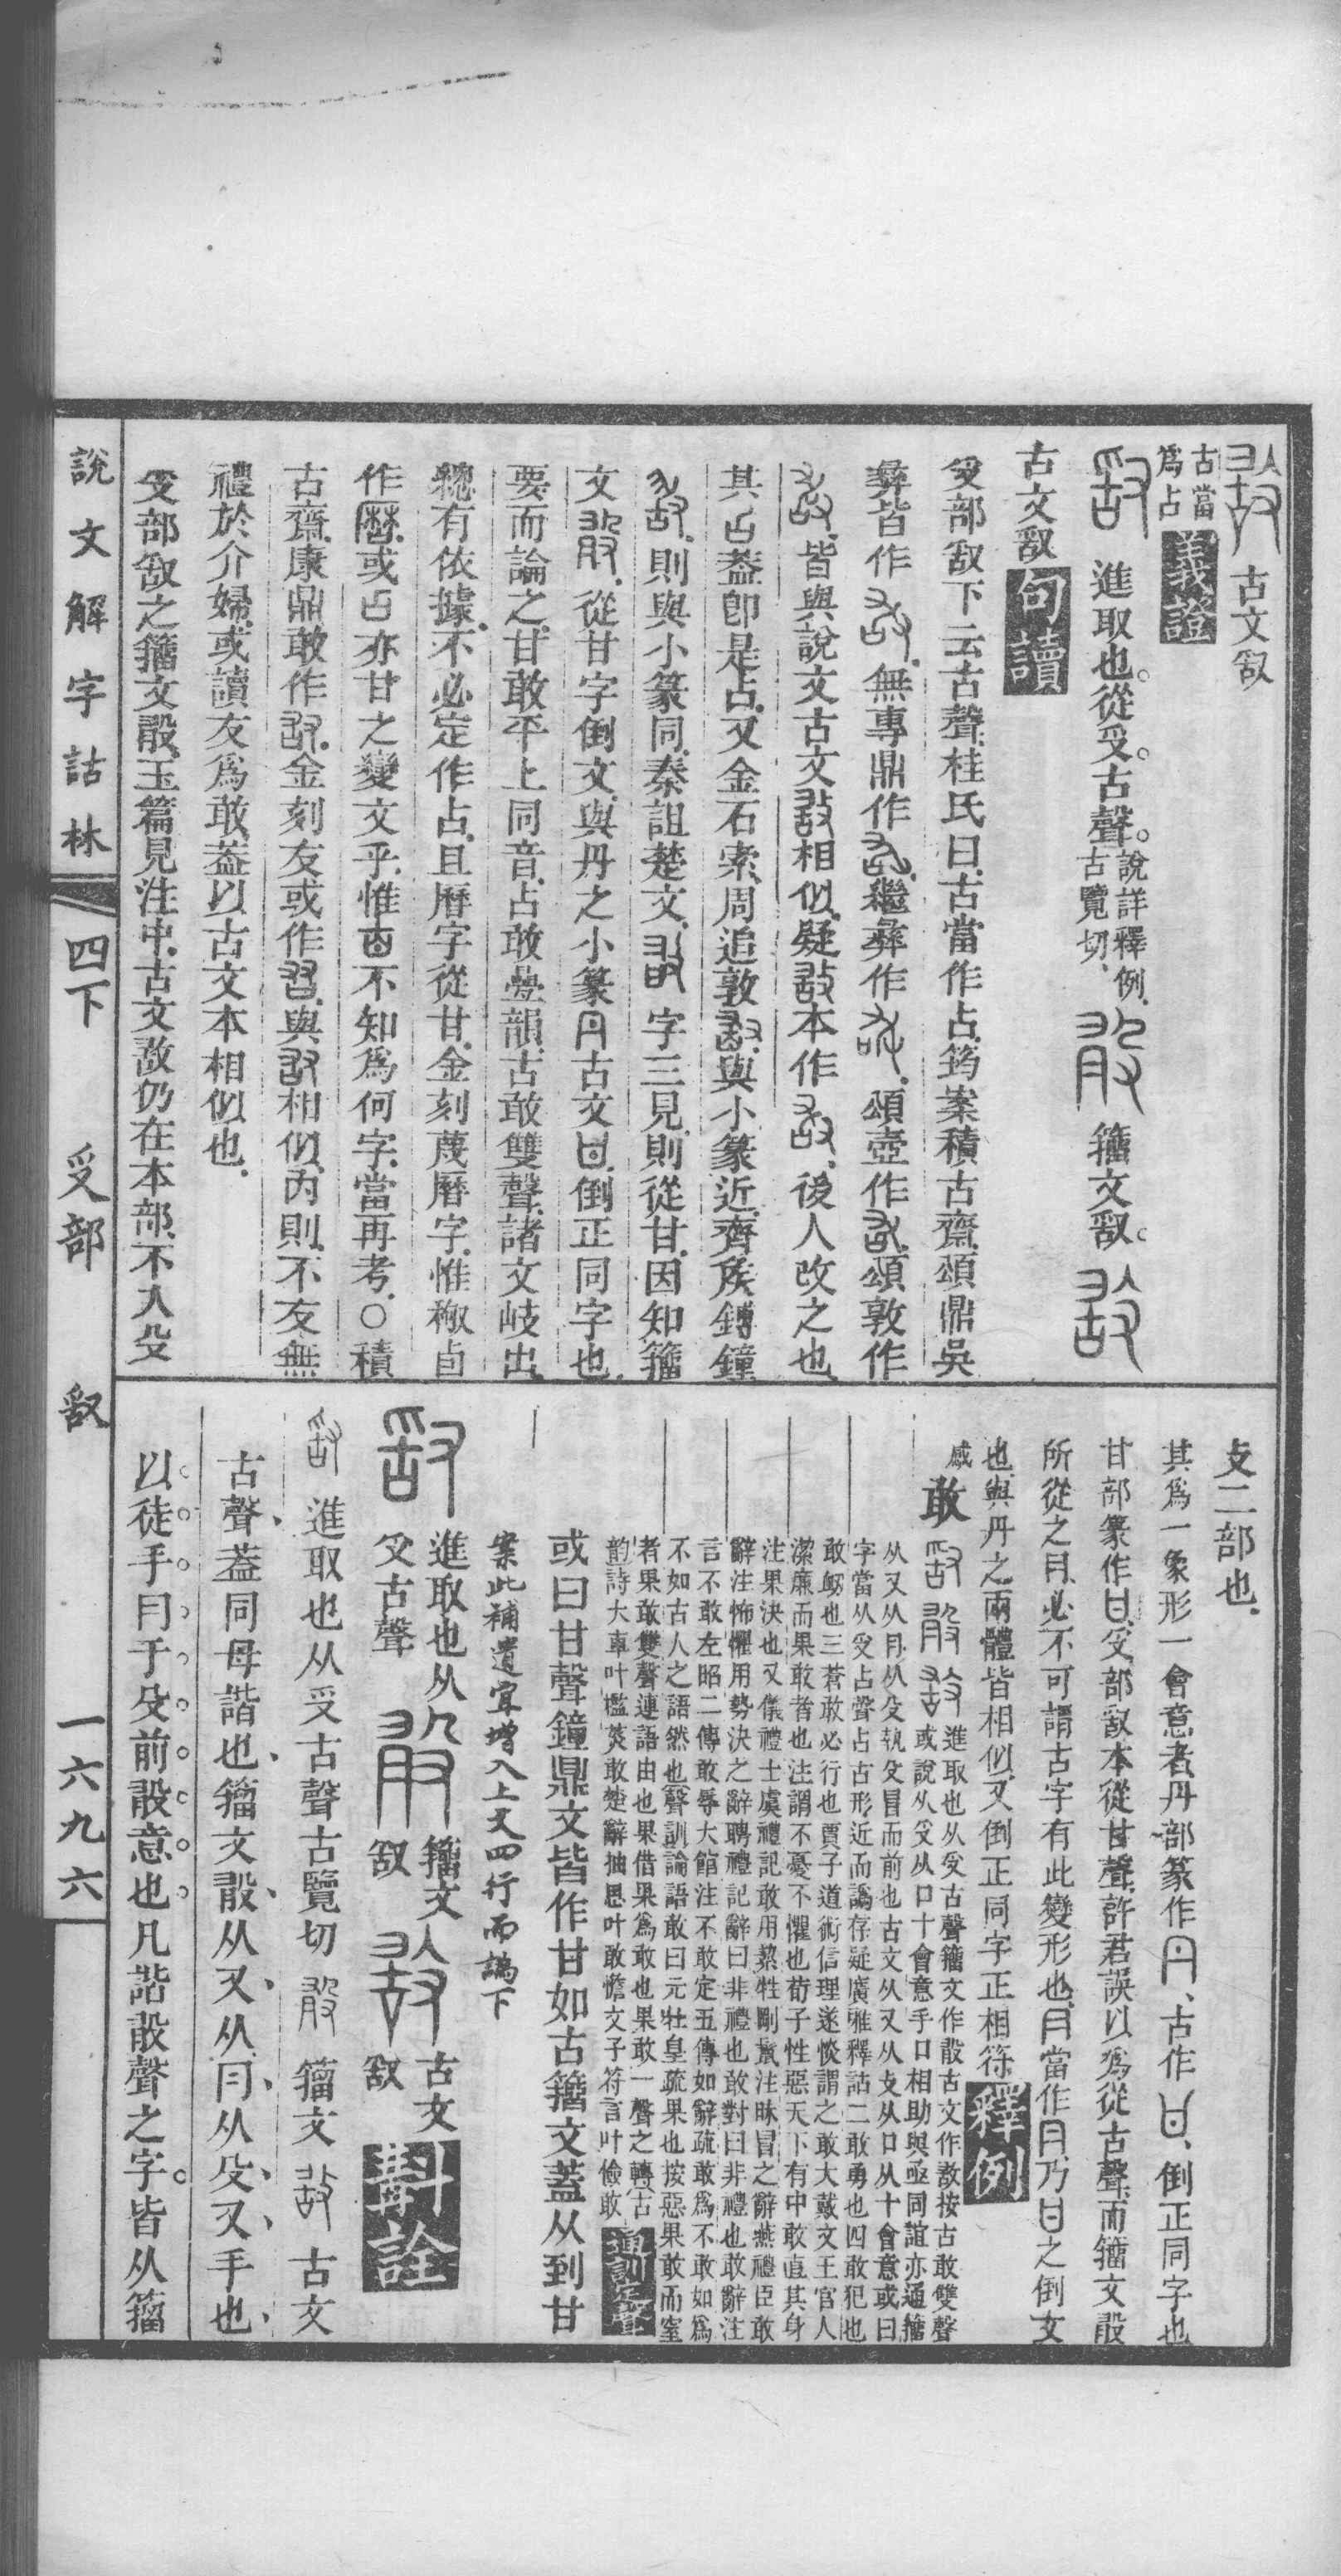 古文𠭖
古當
爲占
義證
進取也。從𠬪。古聲。
說詳釋例.
古覽切.
籒文𠭖。
古文𠭖
句讀
𠬪部𠭖下云古聲.桂氏曰.古當作占.筠案積古齋.頌鼎吳
彝皆作
無專鼎作
繼彝作
頌壺作
頌敦作
皆與說文古文
相似.疑
本作
後人改之也
其
葢卽是占.又金石索.周追敦
與小篆近.齊侯鎛鐘
則與小篆同.秦詛楚文.
字三見.則從甘.因知籒
文
從甘字倒文.與丹之小篆
古文
倒正同字也.
要而論之.甘敢平上同音.占敢疊韻.古敢雙聲.諸文岐出.
總有依據.不必定作占.且曆字從甘.金刻蔑曆字.惟
作
或
亦甘之變文乎.惟
不知爲何字.當再考.○積
古齋.康鼎敢作
金刻友或作
與
相似.內則.不友無
禮於介婦.或讀友爲敢.葢以古文本相似也.
𠬪部𠭖之籒文㪉.玉篇見注中.古文敢仍在本部.不入殳
攴二部也.
其爲一象形一會意者.丹部篆作
、古作
、倒正同字也
甘部篆作
𠬪部𠭖本從甘聲.許君誤以爲從古聲.而籒文㪉
所從之
必不可謂古字有此變形也.
當作
乃
之倒文
也.與丹之兩體皆相似.又倒正同字正相符
釋例
感
敢
進取也从𠬪古聲籒文作㪉古文作敢按古敢雙聲
或說从𠬪从口十會意手口相助與亟同誼亦通籒
从又从
从殳執殳冒而前也古文从又从攴从口从十會意或曰
字當从𠬪占聲占古形近而譌存疑廣雅釋詁二敢勇也四敢犯也
敢䖐也三蒼敢必行也賈子道術信理遂惔謂之敢大戴文王官人
潔廉而果敢者也注謂不憂不懼也荀子性惡天下有中敢直其身
注果決也又儀禮士虞禮記敢用絜牲剛鬣注昧冒之辭燕禮臣敢
辭注怖懼用勢決之辭聘禮記辭曰非禮也敢對曰非禮也敢辭注
言不敢左昭二傳敢辱大館注不敢定五傳如辭疏敢爲不敢如爲
不如古人之語然也聲訓論語敢曰元牡皇疏果也按惡果敢而窒
者果敢雙聲連語由也果借果爲敢也果敢一聲之轉古
韵詩大車叶檻菼敢楚辭抽思叶敢憺文子符言叶儉敢
通訓定聲
或曰甘聲鐘鼎文皆作甘如古籒文蓋从到甘
案此補遺宜增入上文四行而譌下
進取也从
𠬪古聲
籒文
𠭖
古文
𠭖
斠詮
進取也从𠬪古聲古覽切
籒文
古文
古聲葢同母諧也籒文㪉从又从冃从殳又手也
以徒手冃于殳前㪉意也凡諧㪉聲之字皆从籒
說文解字詁林
四下
𠬪部
𠭖
一六九六